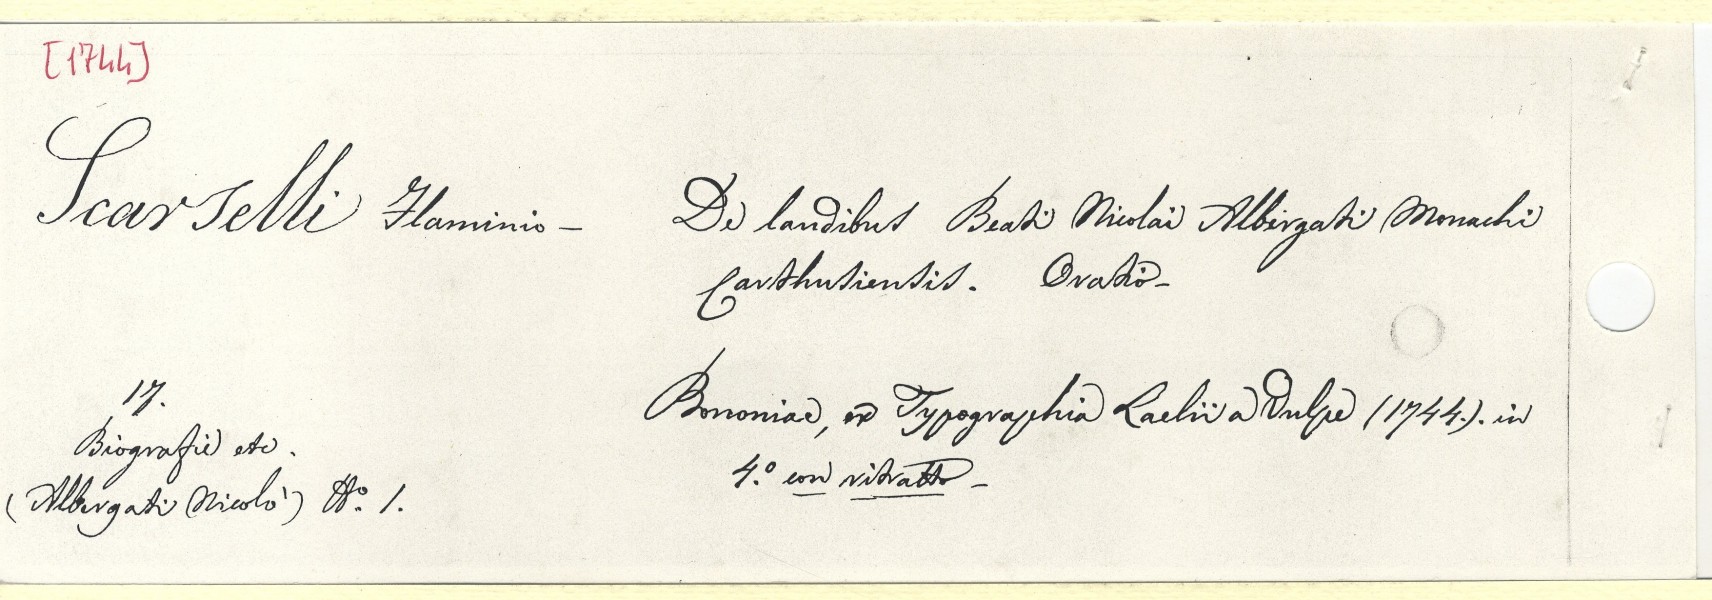 [1744]
Scarselli Flaminio - De laudibus Beati Nicolai Albergati Monachi
Carthusiensis. Oratio -
17.
Bononiae, ex Typographia Laelii a Vulpe (1744.). in
Biografie etc.
4.° con ritratto -
(Albergati Nicolò) N.° 1.